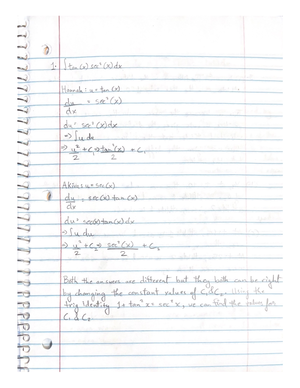 1. ∫tan(x) sec²(x) dx
Hannah: u = tan(x)
du/dx = sec²(x)
du = sec²(x) dx
→ ∫u du
→ u²/2 + C₁ → tan²(x)/2 + C₁
u = sec(x)
du/dx = sec(x) tan(x)
du = sec(x) tan(x) dx
→ ∫u du
→ u²/2 + C₂ → sec²(x)/2 + C₂
Both the answers are different but they both can be right
by changing the constant values of C₁ & C₂. Using the
trig identity 1 + tan²x = sec²x, we can find the value for
C₁ & C₂